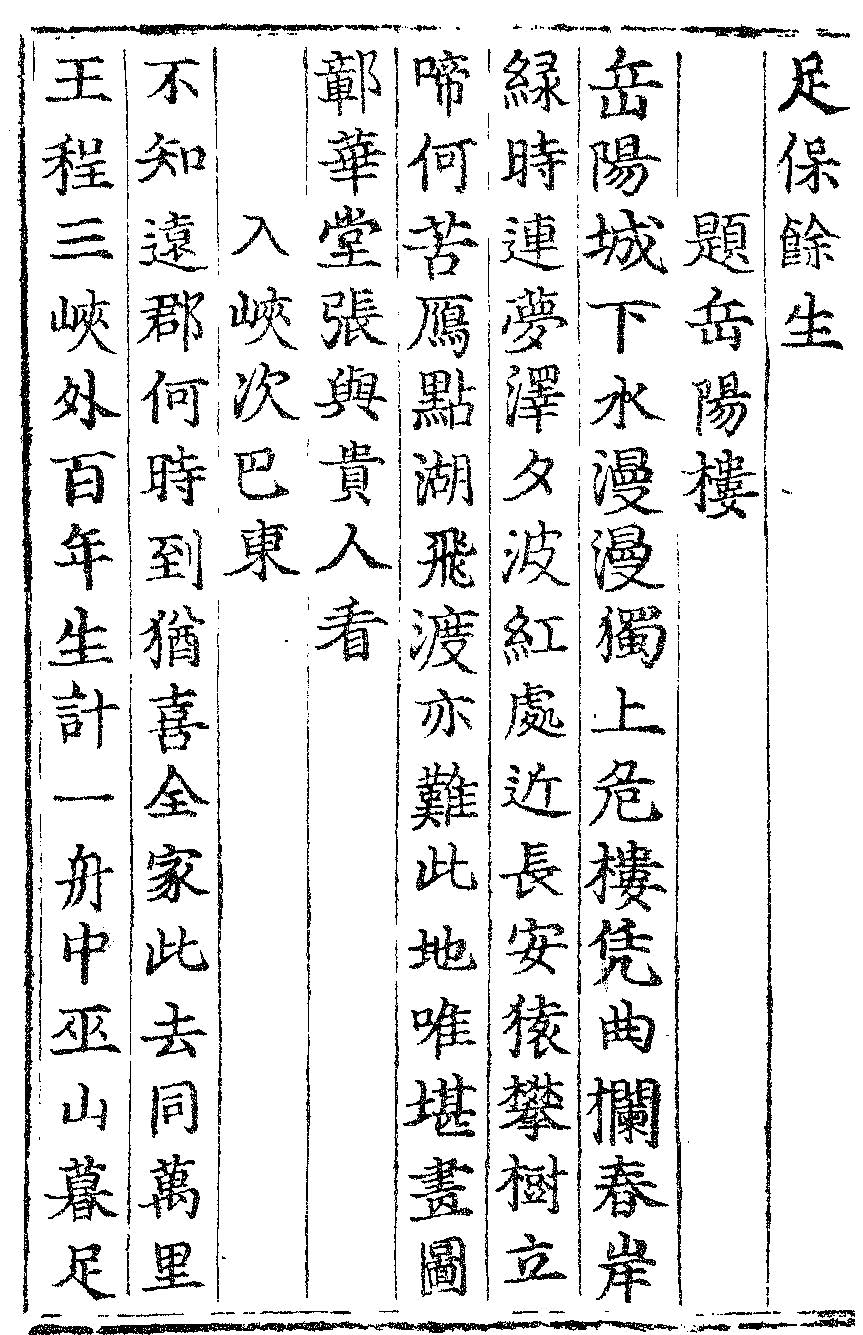 足保餘生
題岳陽樓
岳陽城下水漫漫獨上危樓凭曲欄春岸
緑時連夢澤夕波紅處近長安猿攀樹立
啼何苦鴈點湖飛渡亦難此地唯堪畫圖
鄣華堂張與貴人看
入峽次巴東
不知遠郡何時到猶喜全家此去同萬里
王程三峽外百年生計一舟中巫山暮足